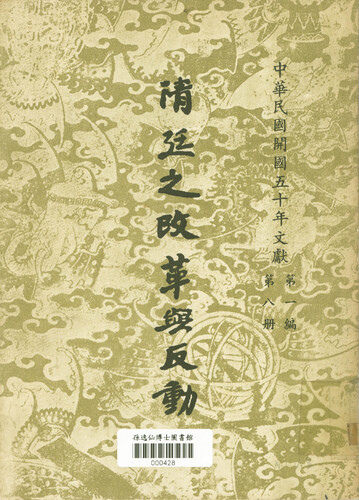 中華民國開國五十年文獻
第一編
第八册
隋廷之改革與反動
孫逸仙博士圖書館
000428